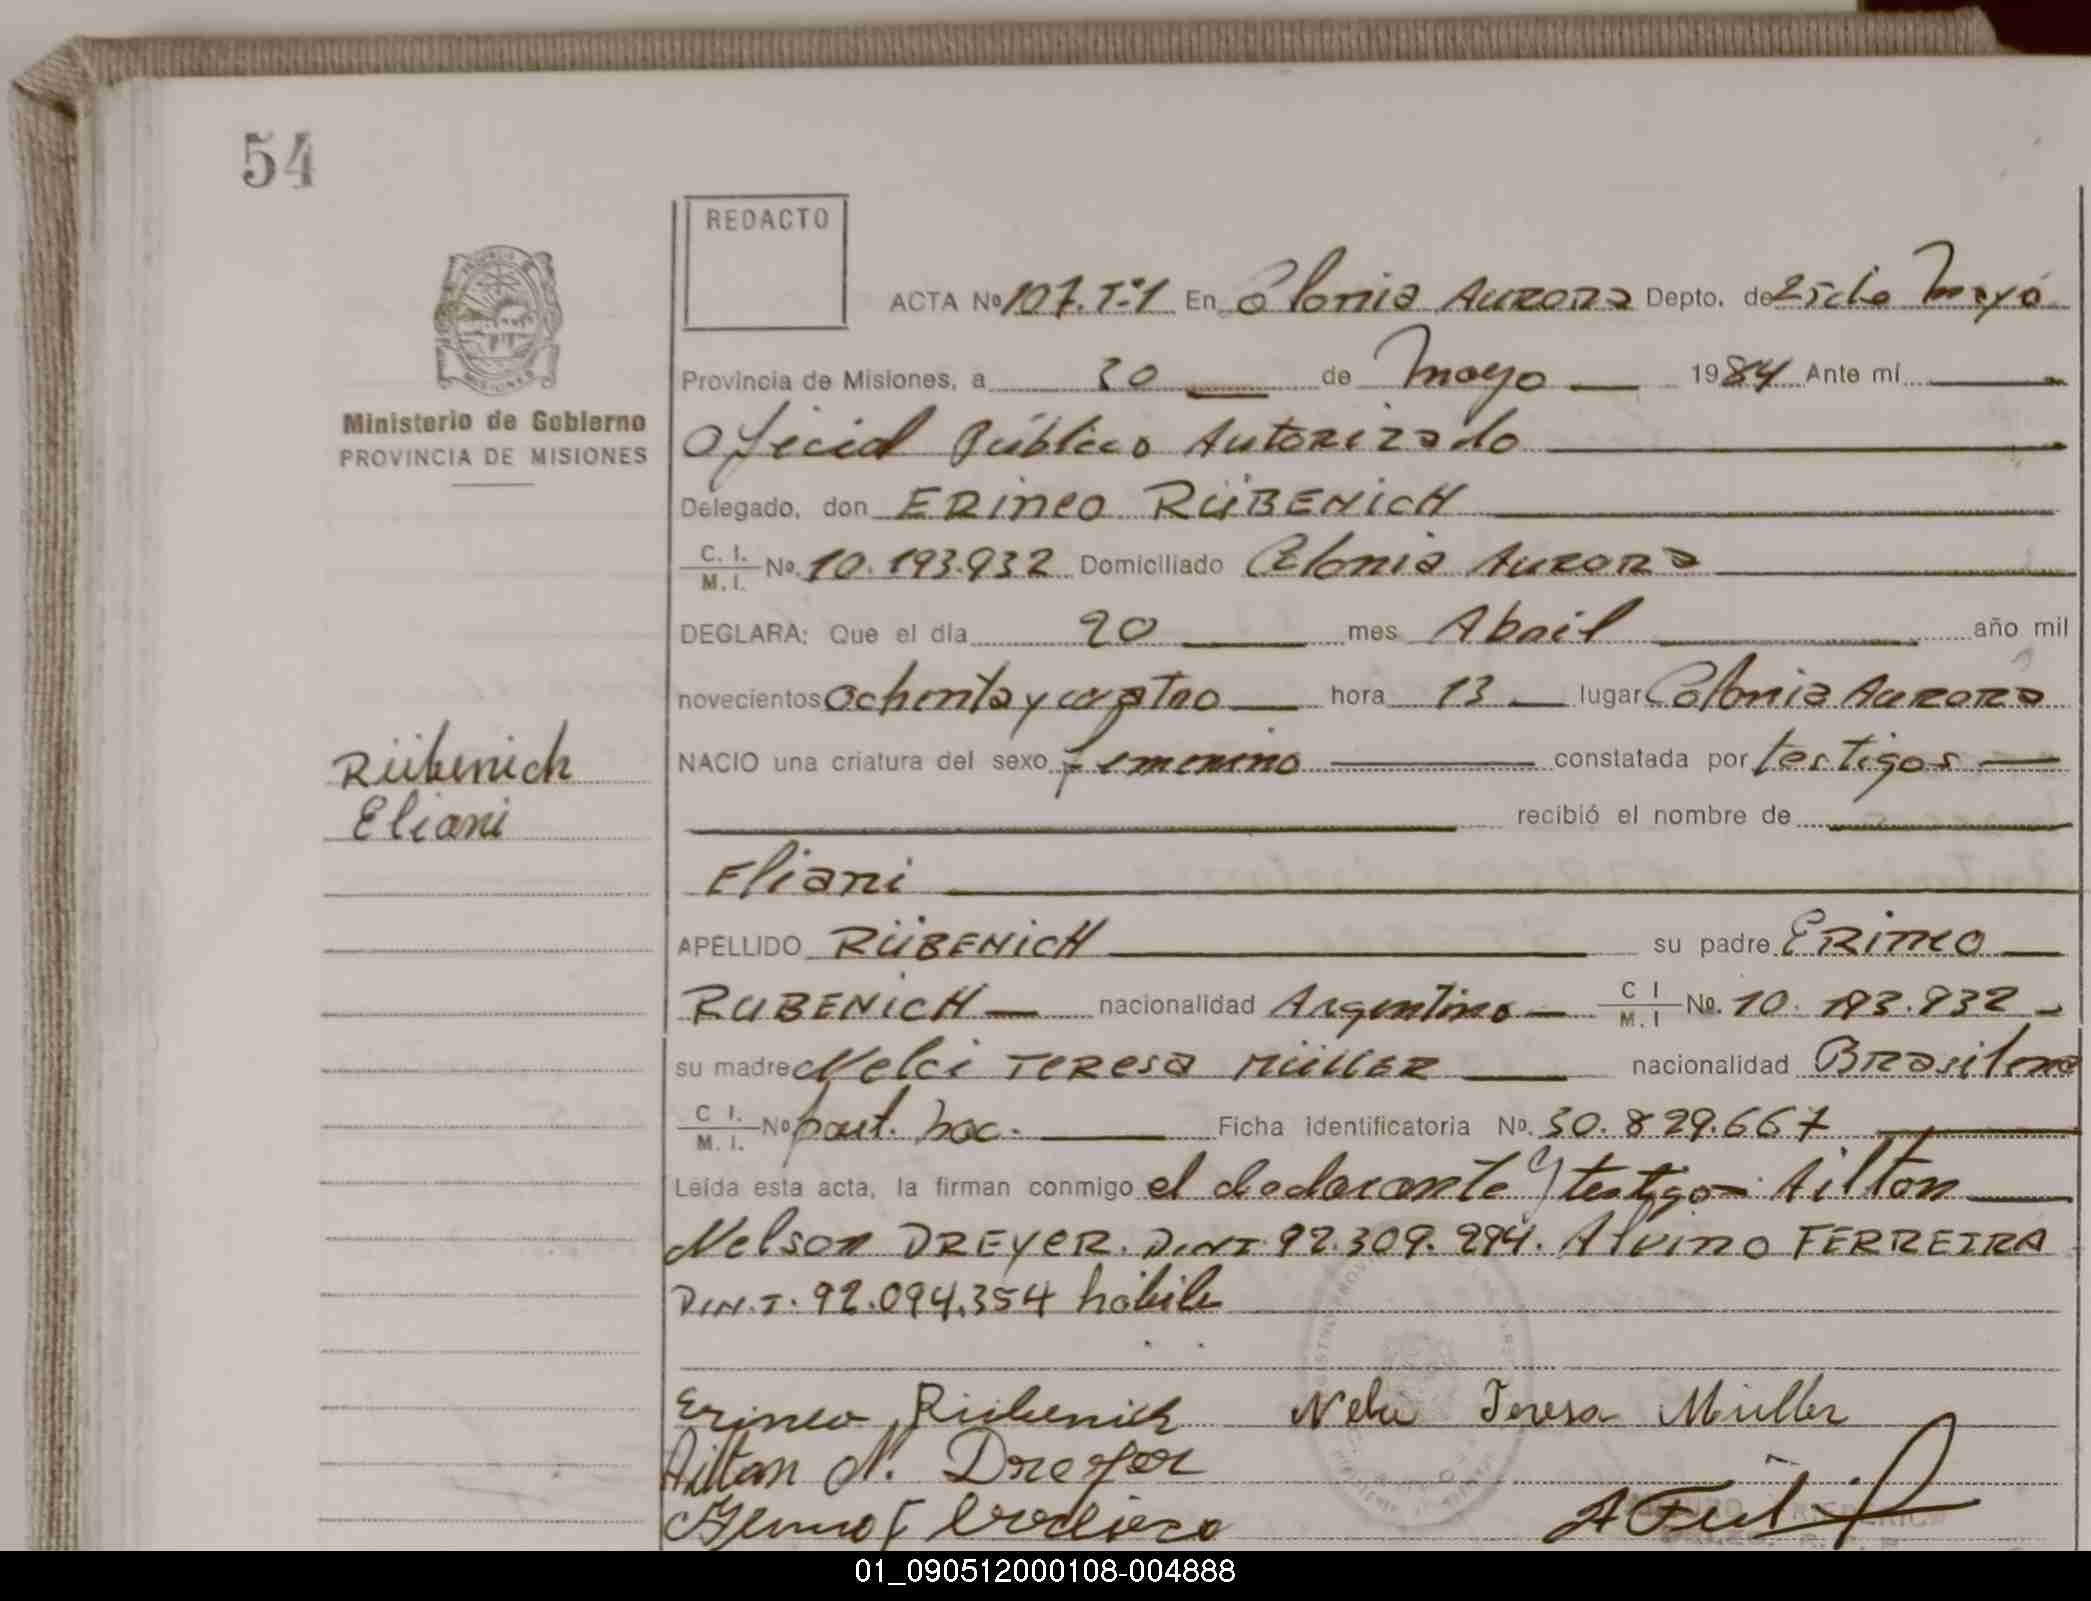 54
REDACTO
ACTA Nº 107.Tº1 En Colonia Aurora Depto. de 25 de Mayo
Provincia de Misiones, a 30 de Mayo 1984 Ante mí
Ministerio de Gobierno
PROVINCIA DE MISIONES
Oficial Público Autorizado
Delegado, don ERINEO RÜBENICH
C. I. / M. I. Nº 10.193.932 Domiciliado Colonia Aurora
DECLARA: Que el día 20 mes Abril año mil
novecientos ochenta y cuatro hora 13 lugar Colonia Aurora
Rübenich
NACIO una criatura del sexo femenino constatada por testigos
Eliani
recibió el nombre de
Eliani
APELLIDO RÜBENICH su padre ERINEO
RUBENICH nacionalidad Argentino C I / M. I Nº. 10.193.932
su madre Nelci Teresa MÜLLER nacionalidad Brasilena
C I. / M. I. Nº Ficha identificatoria Nº. 30.829.667
Leída esta acta, la firman conmigo el declarante y testigos Ailton
Nelson DREYER. D.N.I. 92.309.294. Alvino FERREIRA
D.N.I. 92.094.354 hábiles
Erineo Rübenich Nelci Teresa Müller
Ailton N. Dreyer
01_090512000108-004888